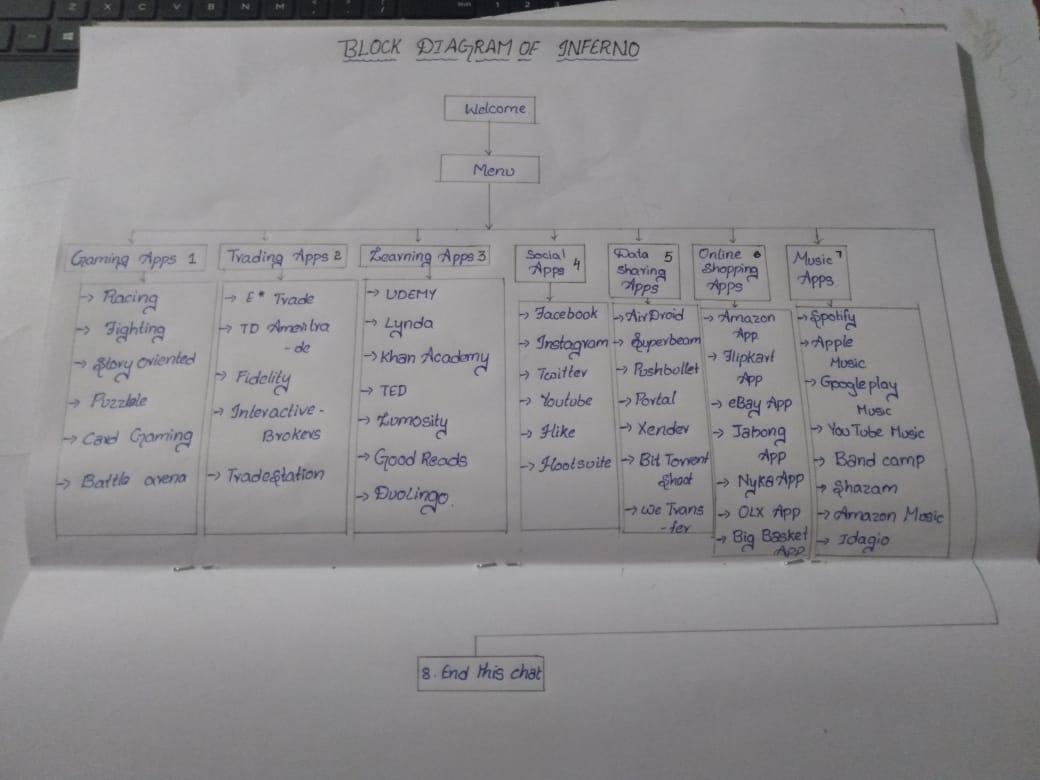 BLOCK DIAGRAM OF INFERNO
Welcome
Menu
Gaming Apps 1
→ Racing
→ Fighting
→ Story oriented
→ Puzzble
→ Card Gaming
→ Battle arena
Trading Apps 2
→ E* Trade
→ TD Ameritra
-de
→ Fidelity
→ Interactive-
Brokers
→ TradeStation
Learning Apps 3
→ UDEMY
→ Lynda
→ Khan Academy
→ TED
→ Lumosity
→ Good Reads
→ Duolingo.
Social
Apps 4
→ Facebook
→ Instagram
→ Twitter
→ Youtube
→ Hike
→ Hootsuite
Data 5
Sharing
Apps
→ AirDroid
→ Superbeam
→ Pushbollet
→ Portal
→ Xender
→ Bit Torrent
Shoot
→ We Trans
-fer
Online 6
Shopping
Apps
→ Amazon
App
→ Flipkart
App
→ eBay App
→ Jabong
App
→ Nyka App
→ OLX App
→ Big Basket
App
Music 7
Apps
→ Spotify
→ Apple
Music
→ Google play
Music
→ YouTube Music
→ Band camp
→ Shazam
→ Amazon Music
→ Idagio
8. End this chat